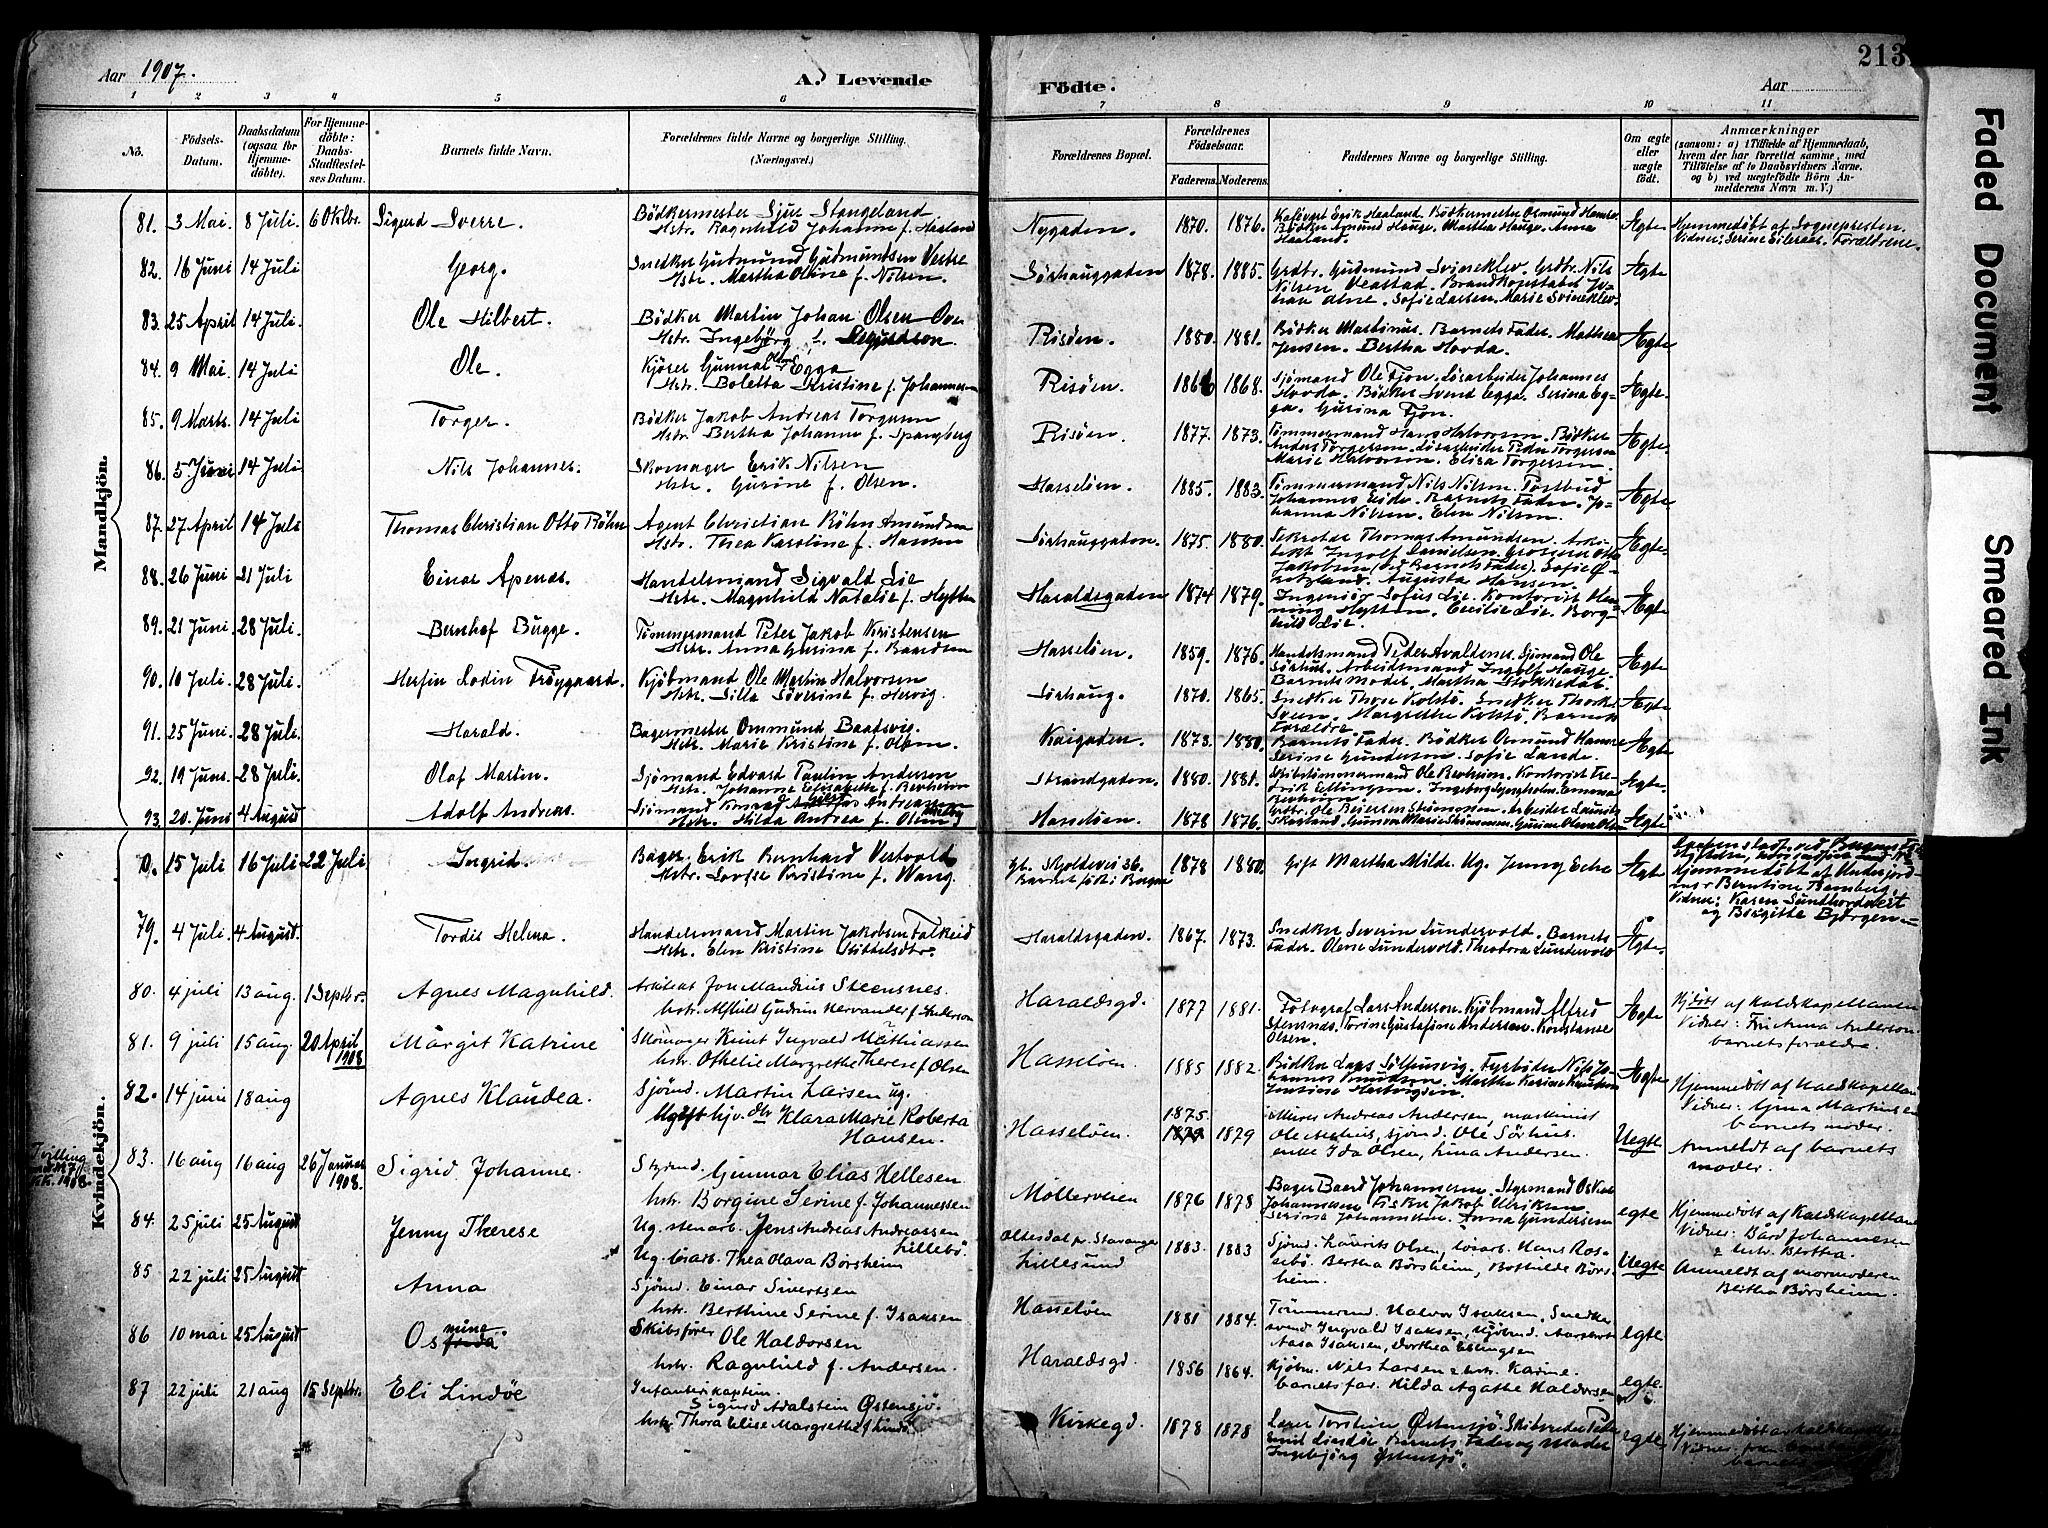 Aar 1907. A. Levende
Födte. Aar 213
1 2 3 4 5 6 7 8 9 10 11
No. Födsels-Datum. Daabsdatum (ogsaa for Hjemmedöbte). For Hjemmedöbte: Daabs-Stadfæstelses Datum. Barnets fulde Navn. Forældrenes fulde Navne og borgerlige Stilling. (Næringsvei.)
Forældrenes Bopæl. Forældrenes Födselsaar. Faderens. Moderens. Faddernes Navne og borgerlige Stilling. Om ægte eller uægte födt. Anmærkninger (saasom: a) i Tilfælde af Hjemmedaab, hvem der har forrettet samme, med Tilföielse af to Daabsvidners Navne, og b) ved uægtefödte Börn Anmelderens Navn m. V.)
Mandkjön.
81. 3 Mai 8 Juli. 6 Oktbr. Sigurd Sverre. Bödkermester Sjur Stangeland
Hstr. Ragnhild Johanne f. Haaland
Nygaden. 1870. 1876. Ægte. Hjemmedöbt af Sognepresten.
82. 16 Juni 14 Juli Georg. Snedker Gudmund Gudmundsen Vestre
Hstr. Martha Oline f. Nilsen.
Sörhauggaden 1878. 1885. Grdbr. Gudmund Svineklev. Grdbr. Nils
Nilsen Veastad. Sofie Larsen. Marie Svineklev. Ægte
83. 25 April 14 Juli. Ole Hilbert. Bödker Martin Johan Olsen
Hstr. Ingebjörg f.
Risöen. 1880. 1881. Bödker Martinus. Barnets Fader. Mathea
Jensen. Bertha Hovda. Ægte
84. 9 Mai. 14 Juli Ole. Kjörer Gunnar Olsen Egga
Hstr. Boletta Kristine f. Johannesen
Risöen. 1868. Sjömand Ole Fjon. Lösarbeider Johannes
Hovda. Bödker Svend Egga. Serina Egga. Gurina Fjon. Ægte.
85. 9 Marts. 14 Juli Torger. Bödker Jakob Andreas Torgersen
Hstr. Bertha Johanne f. Spangberg
Risöen. 1877. 1873. Tömmermand Hans Halvorsen. Bödker
Anders Torgersen. Lösarbeider Peder Torgersen
Marie Halvorsen. Elisa Torgersen. Ægte.
86. 5 Juni 14 Juli Nils Johannes. Skomager Erik Nilsen
Hstr. Gurine f. Olsen.
Hasselöen. 1885. 1883. Tömmermand Nils Nilsen. Postbud
Johannes Eide. Barnets Fader. Johanna Nilsen. Elen Nilsen. Ægte
87. 27 April 14 Juli Thomas Christian Otto Röhn Agent Christian Röhn Amundsen
Hstr. Thea Karoline f. Hansen
Sörhauggaden. 1875. 1880. Sekretær Thomas Amundsen. Arkitekt Ingolf Danielsen. Grosserer Otto
Jakobsen (ved Barnets Fader). Augusta Hansen. Ægte.
88. 26 Juni 21 Juli Einar Apenæs. Handelsmand Sigvald Lie
Hstr. Magnhild Natalie f. Hytten
Haraldsgaden 1874 1879. Ingeniör Sofus Lie. Kontorist Henning Hytten. Cecilie Lie. Borghild Lie. Ægte.
89. 21 Juni. 28 Juli. Bernhof Bugge. Tömmermand Peter Jakob Kristensen
Hstr. Anna Gurina f. Baardsen
Hasselöen. 1859. 1876. Handelsmand Peder Avaldsnes. Sjömand Ole
Sörhus. Arbeidsmand Ingolf Hauge.
Barnets Moder. Martha Stokkedal. Ægte
90. 10 Juli. 28 Juli. Herfin Lodin Fröygaard. Kjöbmand Ole Martin Halvorsen
Hstr. Sille Söverine f. Hervig.
Sörhaug. 1870. 1865. Snedker Thore Kolstö. Snedker
Margrethe Kolstö. Barnets
Forældre. Ægte
91. 25 Juni. 28 Juli. Harald. Bagermester Ommund Baatsvig.
Hstr. Marie Kristine f. Olsen.
Kaigaden. 1873. 1880. Barnets Fader. Bödker Osmund Hamre
Serine Gundersen. Sofie Lande. Ægte
92. 19 Juni. 28 Juli. Olaf Martin. Sjömand Edvard Paulin Andersen
Hstr. Johanne Elisabethe f. Berheim
Strandgaden. 1880. 1881. Skibstömmermand Ole Berheim. Kontorist Fredrik Ellingsen. Ægte.
93. 20 Juni 4 August Adolf Andreas. Sjömand Konrad Andreassen
Hstr. Hilda Andrea f. Olsen
Hasselöen. 1878 1876. Ægte
Kvindekjön.
0. 15 Juli 16 Juli 22 Juli Ingrid. Bager Erik Bernhard Vestvold
Hstr. Lovise Kristine f. Wang.
Skoldevei 36.
Barnet födt i Bergen 1878 1880. Gift Martha Milde. Ug. Jenny Eche Ægte
Hjemmedöbt af Underjordmor Berntine Bamberg.
Vidner: Karen Sundhordvert
og Birgitte Björgen
79. 4 Juli. 4 August. Tordis Helena. Handelsmand Martin Jakobsen Falkeid
Hstr. Elen Kristina Kittelsdtr.
Haraldsgaden. 1867. 1873. Snedker Severin Lundervold. Barnets
Fader. Olene Lundervold. Theodora Lundervold Ægte.
80. 4 juli 13 aug. 1 Septbr. Agnes Magnhild. Arkitekt Jon Mandius Steensnes.
hstr. Alfhild Gudrun Hervander f. Anderson
Haraldsgd. 1877 1881. Fotograf Lars Anderson. Kjöbmand Alfred
Stensnæs. Torine Gustafine Andersen. Konstanse
Olsen. Ægte Hjdöbt af kaldskapellanen
Vidner: Fru Anna Anderson.
barnets forældre.
81. 9 juli 15 aug. 20 April 1908 Margit Katrine Skomager Knut Ingvald Mathiassen
hstr. Othelie Margrethe Therese f. Olsen
Hasselöen. 1885 1882. Bödker Lars Sölfinsvig. Fyrböder Nils Johannes Knudsen. Martha Karine Knudsen
Ægte Hjemmedöbt af Kaldskapellan
Vidner: Gina Martinsen
barnets moder.
82. 14 juni 18 aug Agnes Klaudea. Sjömd. Martin Larsen ug.
Ugift hjv. dtr Klara Marie Roberta
Hansen.
Hasselöen. 1875. 1879 1879 Murer Andreas Andersen, maskinist
Ole Aarhus, sjömd. Ole Sörhus.
enke Ida Olsen, Lina Andersen. Uegte Anmeldt af barnets
moder.
Tvilling
83. 16 aug 16 aug 26 Januar 1908. Sigrid Johanne. Styrmd. Gunnar Elias Hellesen
hstr. Borgine Serine f. Johannessen
Möllerveien 1876 1878 Bager Baard Johannesen. Styrmand Oskar
Johannesen. Fisker Jakob Ulriksen
Serina Johannesen. Anna Gundersen egte Hjemmedöbt af Kaldskapellan
Vidner: Bård Johannesen
& hstr. Bertha.
84. 25 juli 25 August Jenny Therese Ug. stenarb. Jens Andreas Andreassen
Lillebö.
Ug. lösarb. Thea Olava Börsheim
Oltesdal pr. Stavanger
Lillesund 1883. 1883 Sjömd. Laurits Olsen, lösarb. Hans Rossebö. Bertha Börsheim, Bothilde Börsheim. Uegte Anmeldt af mormoderen
Bertha Börsheim.
85 22 juli 25 August Anna Sjömd. Einar Sivertsen
hstr. Berthine Serine f. Isaksen
Hasselöen 1881 1884. Tömmermd. Halvor Isaksen, Snedkersvend Ingvald Isaksen, kjöbmd.
Aasa Isaksen, Dorthea Ellingsen egte.
86 10 mai 25 August Osmine Skibsförer Ole Haldorsen
hstr. Ragnhild f. Andersen.
Haraldsgd. 1856 1864. Kjöbm. Nils Larsen & hstr. Karine.
barnets far. Hilda Agathe Haldorsen egte
87 22 juli 21 aug 15 Septbr. Eli Lindöe Infanterikaptein.
Sigurd Adalstein Østensjö.
hstr. Thora Elise Margrethe f. Lindö
Kirkegd. 1878 1878 Lærer Torstein Østensjö. Skibsreder Peder
Emil Lindöe. Barnets Fader og Moder
Ingebjörg Østensjö. egte Hjemmedöbt av kaldskapellanen
Vidner:
Faded Document
Smeared Ink